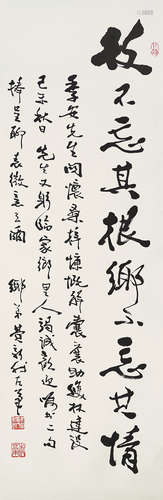 故不忘其根鄉不忘其情
季安先生関懷桑梓慷慨解囊襄助纔林建設
己未秋日先生又躬臨家鄉里人竭誠歡迎嘱書二句
捧呈聊志微意之爾
鄉弟黄新